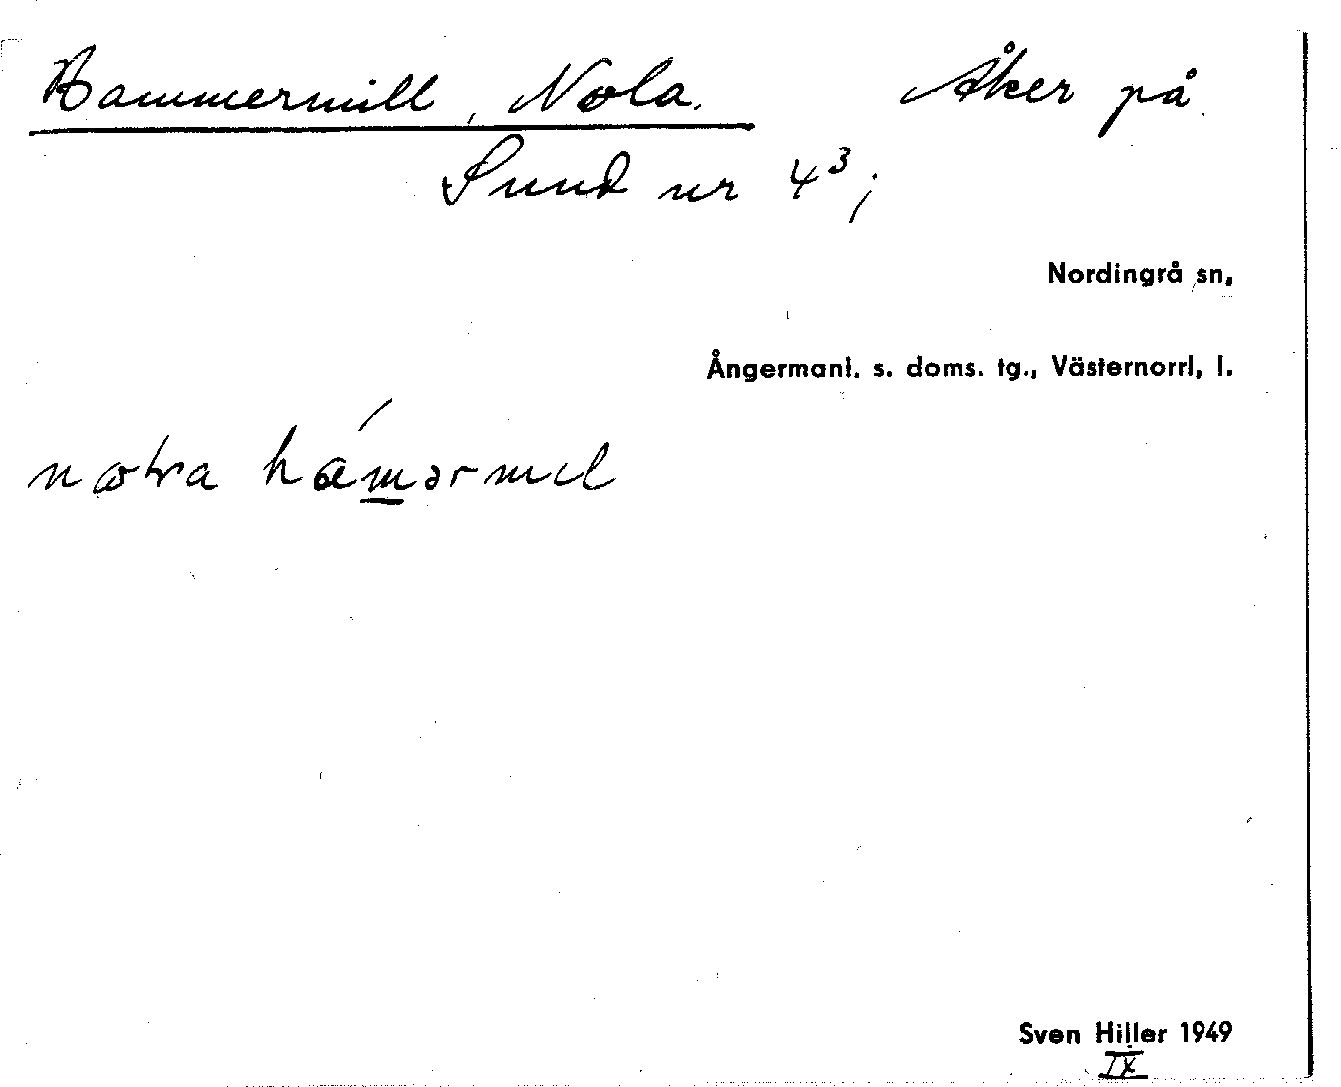 Hammermill, Nola. Åker på
Sund nr 4³;
Nordingrå sn,
Ångermanl. s. doms. tg., Västernorrl. l.
hámərmɩl
Sven Hiller 1949
IX